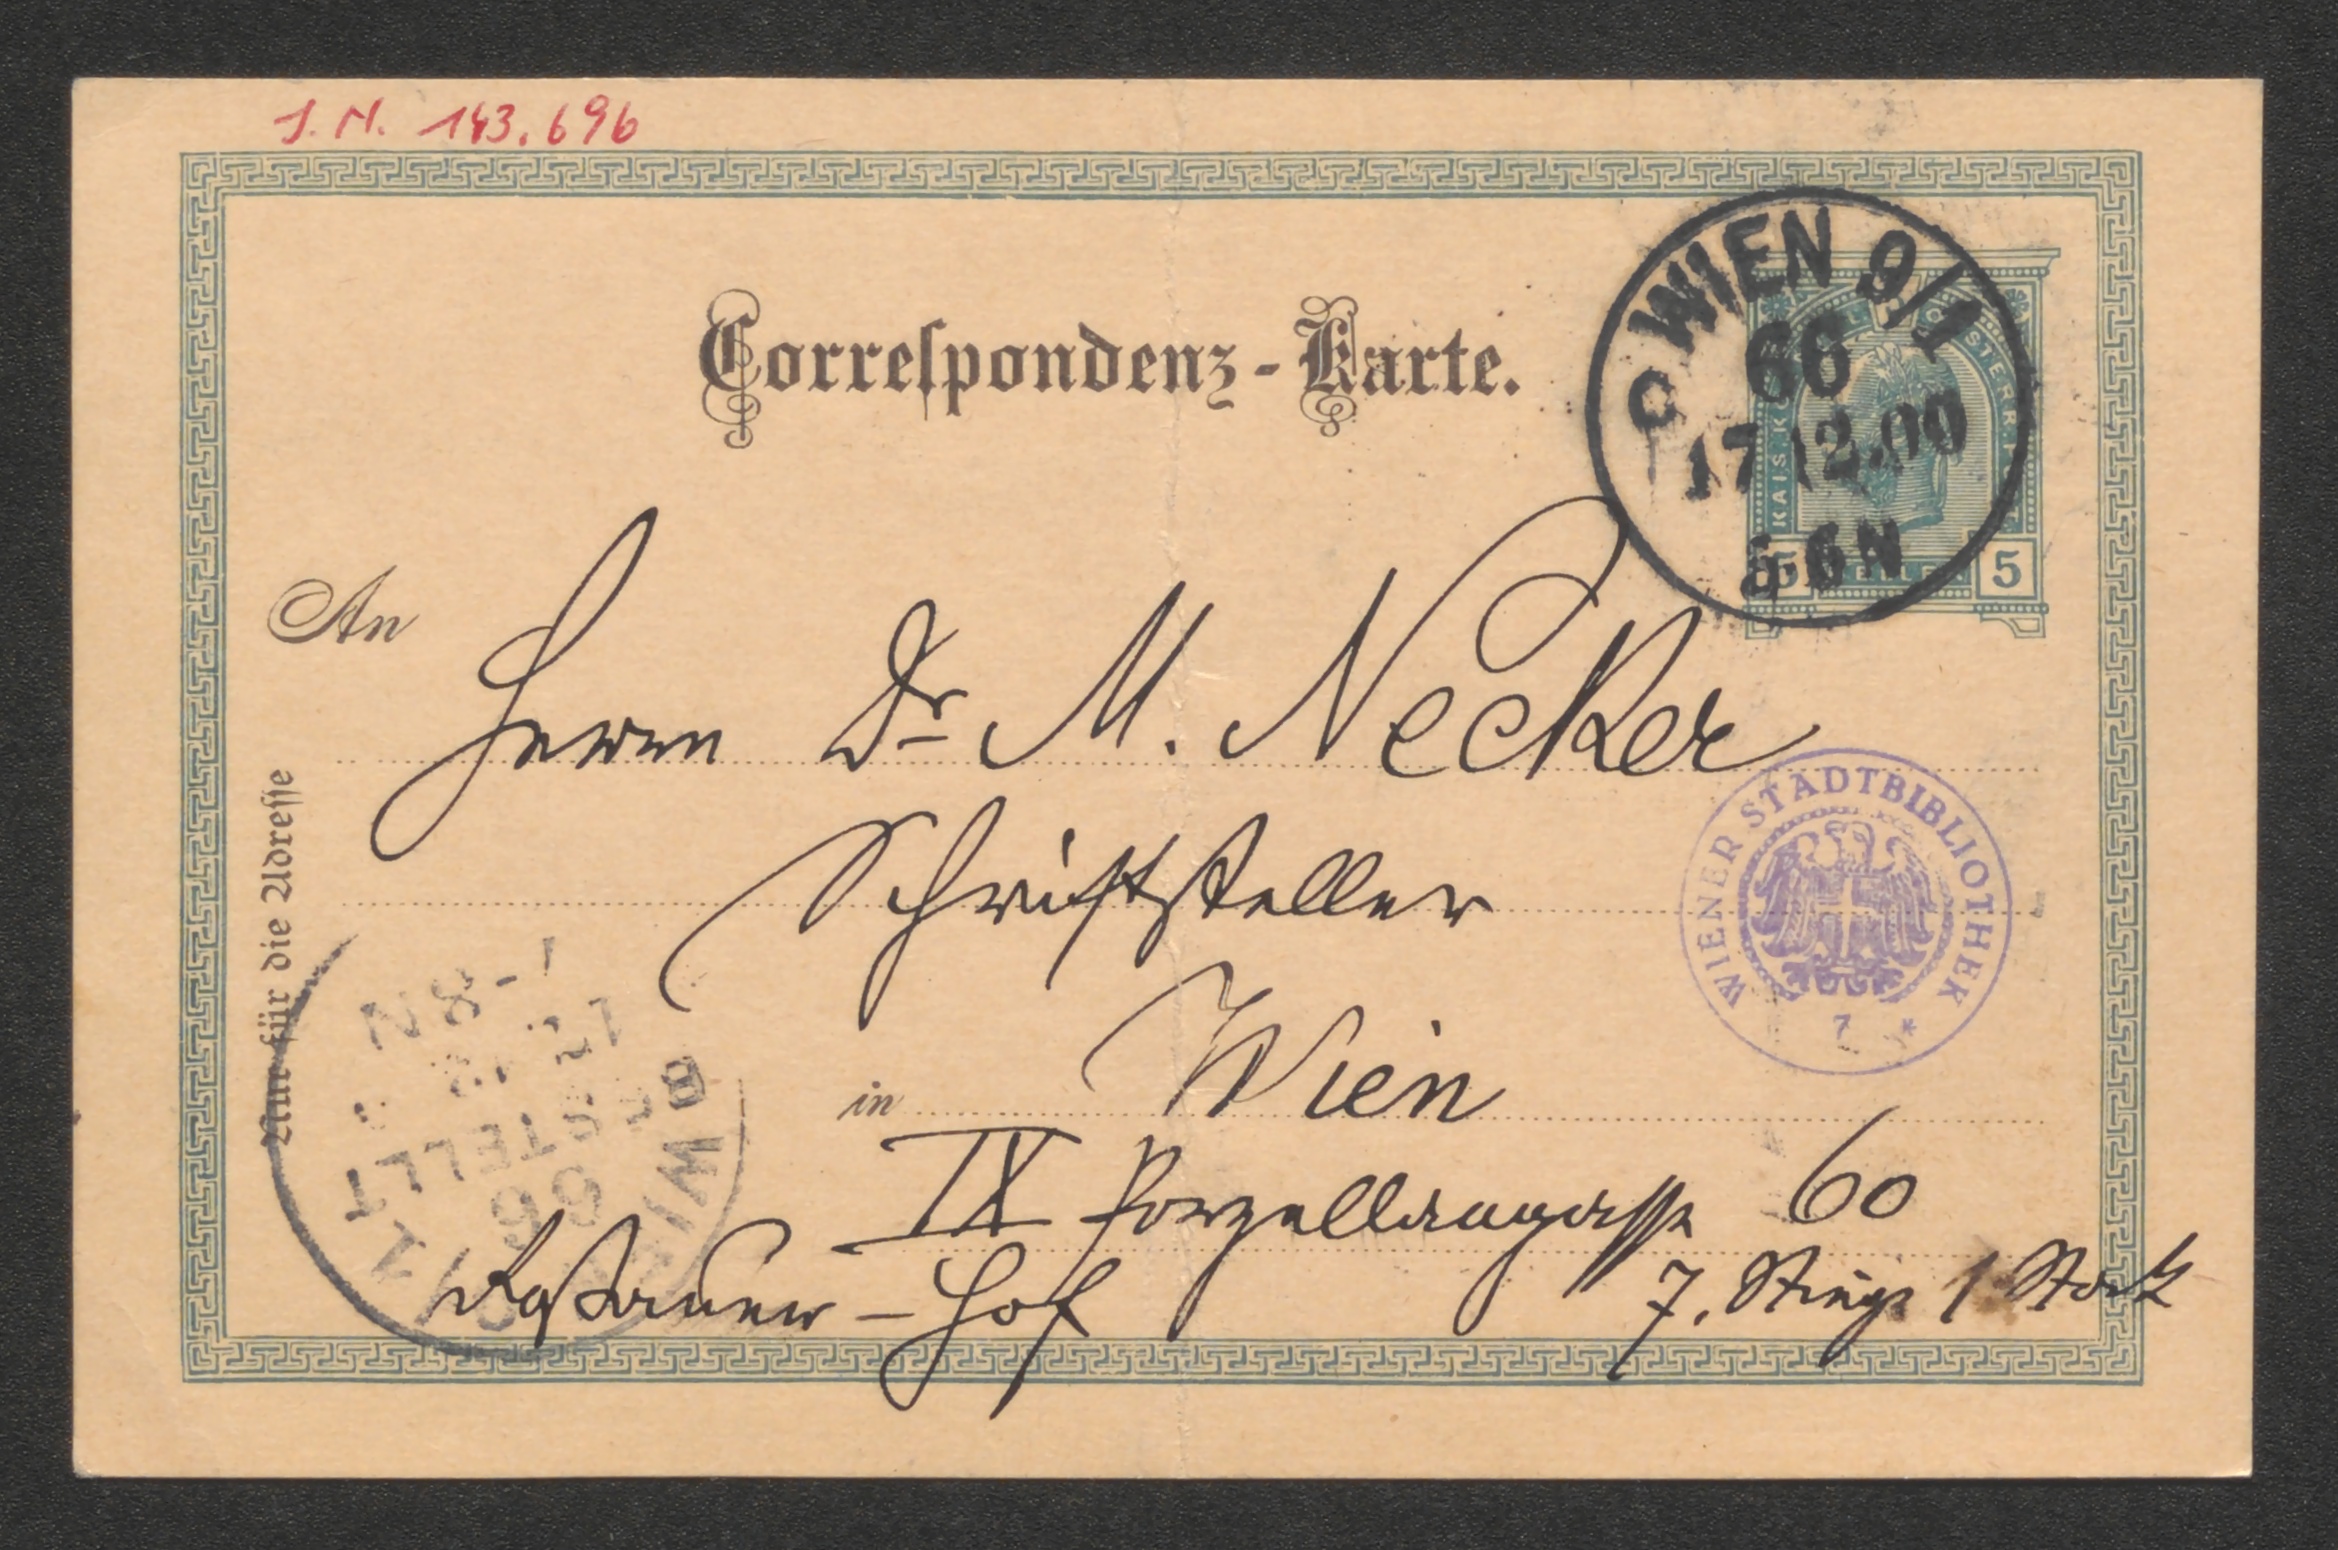 J. N. 143.696
Correspondenz-Karte.
C WIEN 9/1
66
17 12.00
5-6N
KAIS.K ÖSTERR.
5 HELLER 5
An
Herrn Dr M. Necker
Schriftsteller
in Wien
IX Porzellangasse 60
Roßauer-Hof 7. Stiege 1 Stock
Nur für die Adresse
WIENER STADTBIBLIOTHEK
7 *
WIEN 9/1
66
BESTELLT
7-8N